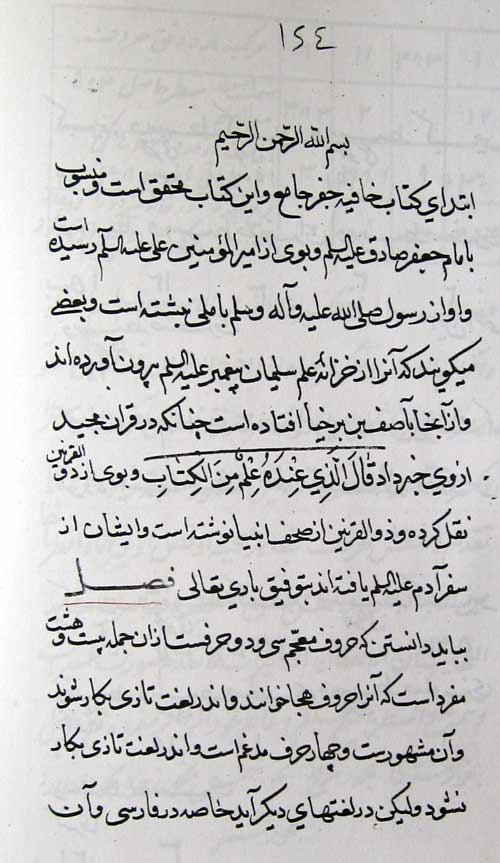 ١٥٤
بسم الله الرحمن الرحیم
ابتدای کتاب خافیه جفر جامع و این کتاب محقق است و منسوب
بامام جعفر صادق علیه السلم و بوی از امیر المؤمنین علی علیه السلم رسیده است
و او از رسول صلی الله علیه و آله و سلم باملی نبشته است و بعضے
میکویند که آنرا از خزانهٔ علم سلیمان پیغمبر علیه السلم بیرون آورده اند
و از آنجا بآصف بن برخیا افتاده است چنانکه در قران مجید
ازوی خبر داد قَالَ الَّذِي عِنْدَهُ عِلْمٌ مِنَ الْكِتَابِ و بوی از ذو القرنین
نقل کرده و ذو القرنین از صحف انبیا نوشته است و ایشان از
سفر آدم علیه السلم یافته اند بتوفیق باری تعالی فصل
بباید دانستن که حروف معجم سی و دو حرفست از ان جمله بیست و هشت
مفرد است که آنرا حروف هجا خوانند و اندر لغت تازی بکار شوند
و آن مشهورست و چهار حرف مدغم است و اندر لغت تازی بکار
نشود ولیکن در لغتهای دیکر آید خاصه در فارسی و آن